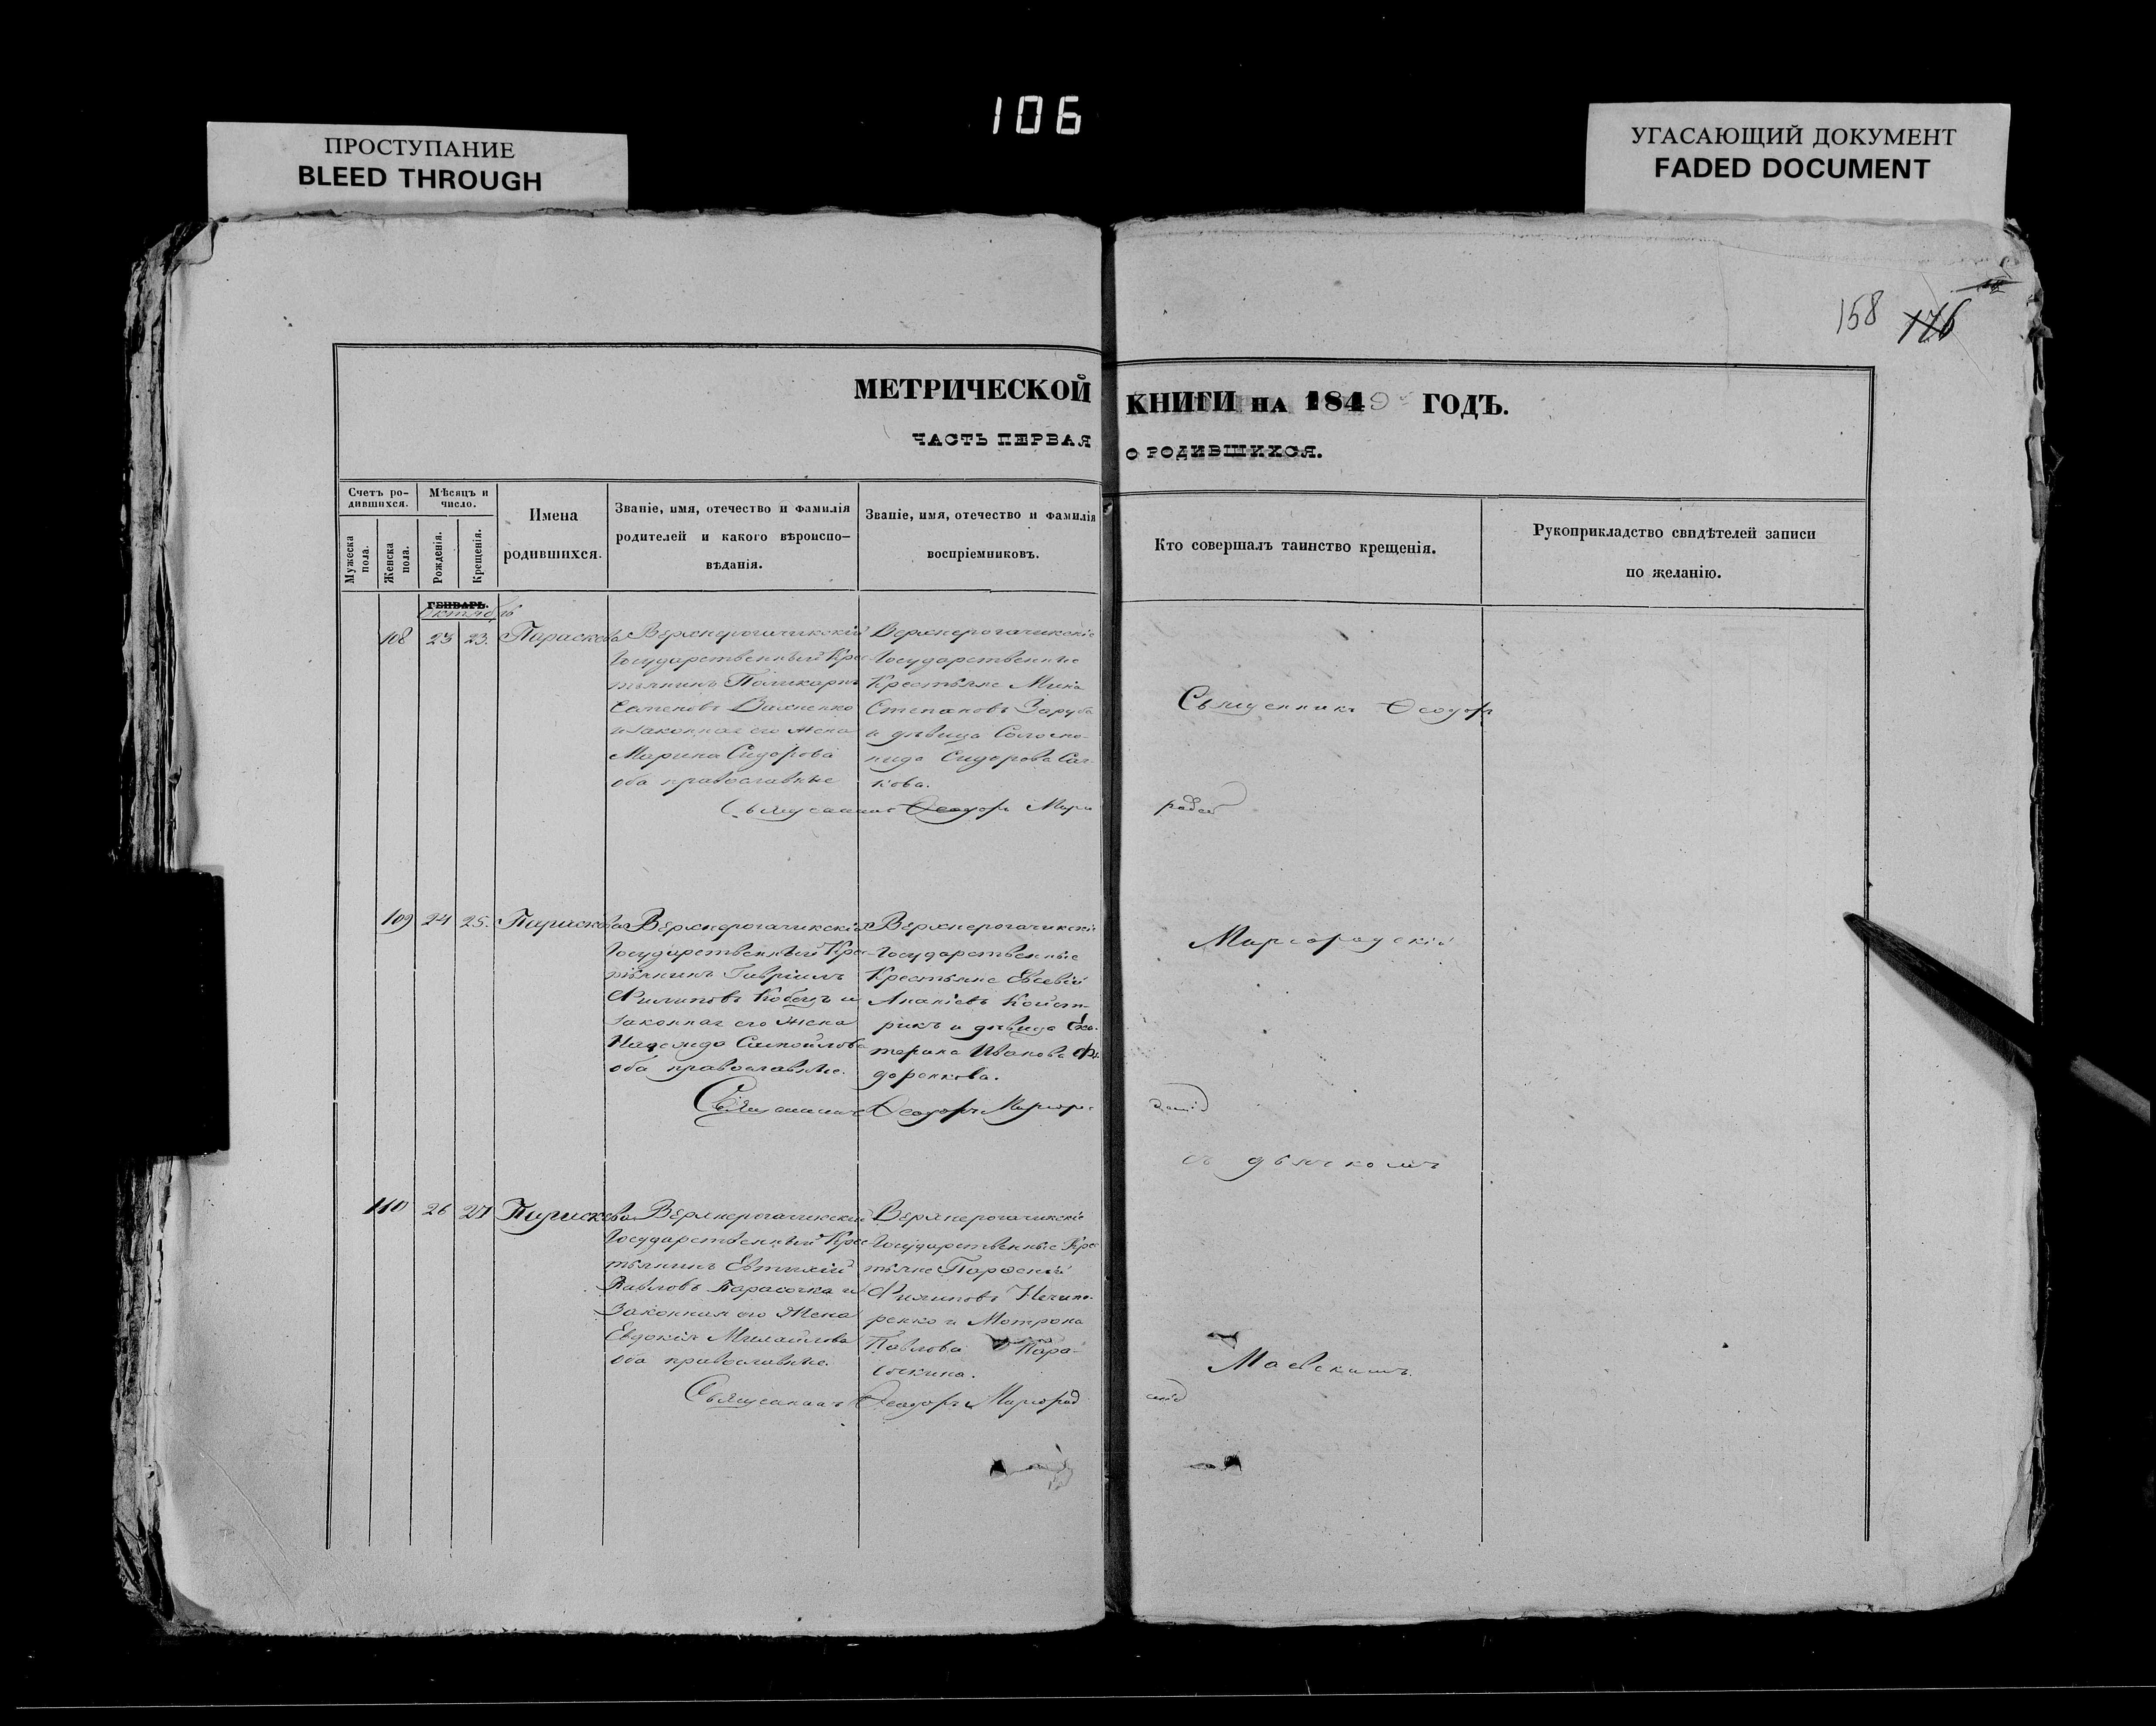 106
ПРОСТУПАНИЕ
BLEED THROUGH
УГАСАЮЩИЙ ДОКУМЕНТ
FADED DOCUMENT
158 176
МЕТРИЧЕСКОЙ КНИГИ НА 1849 ГОДЪ.
ЧАСТЬ ПЕРВАЯ О РОДИВШИХСЯ.
Счетъ ро-
дившихся.
Мужеска пола.
Женска пола.
Мѣсяцъ и
число.
Рожденія.
Крещенія.
Имена
родившихся.
Званіе, имя, отечество и фамилія
родителей и какого вѣроиспо-
вѣданія.
Званіе, имя, отечество и фамилія
воспріемниковъ.
Кто совершалъ таинство крещенія.
Рукоприкладство свидѣтелей записи
по желанію.
ГЕНВАРЬ.
Октябрь
108 23 23. Параскева
Верхнерогачикскій
Государственный Крес-
тьянинъ Поликарпъ
Семеновъ Вахненко
и законная его жена
Марина Сидорова
оба православные
Верхнерогачикскіе
Государственные
Крестьяне Мина
Степановъ Заруба
и дѣвица Соломо-
нида Сидорова
кова.
Священникъ Ѳеодоръ Мирго
родскій
109 24 25. Параскева
Верхнерогачикскій
Государственный Крес-
тьянинъ Гавріилъ
Филиповъ Кобецъ и
законная его жена
Надежда Самойлова
оба православные.
Верхнерогачикскіе
Государственные
Крестьяне Евсевій
Ананіевъ
рикъ и дѣвица Ека-
терина Иванова Фе-
доренкова.
Священникъ Ѳеодоръ Миргоро-
дскій
110 26 27 Параскева
Верхнерогачикскій
Государственный Крес-
тьянинъ Евтихій
Павловъ Парасочка и
Законная его Жена
Евдокія Михайлова
оба православные.
Верхнерогачикскіе
Государственные Крес-
тьяне
Филиповъ Нечипо-
ренко и Мотрона
Павлова Пара-
сочкина.
Священникъ Ѳеодоръ Миргород
скій
Священникъ Ѳеодоръ
Миргородскій
съ дьячкомъ
Маевскимъ.